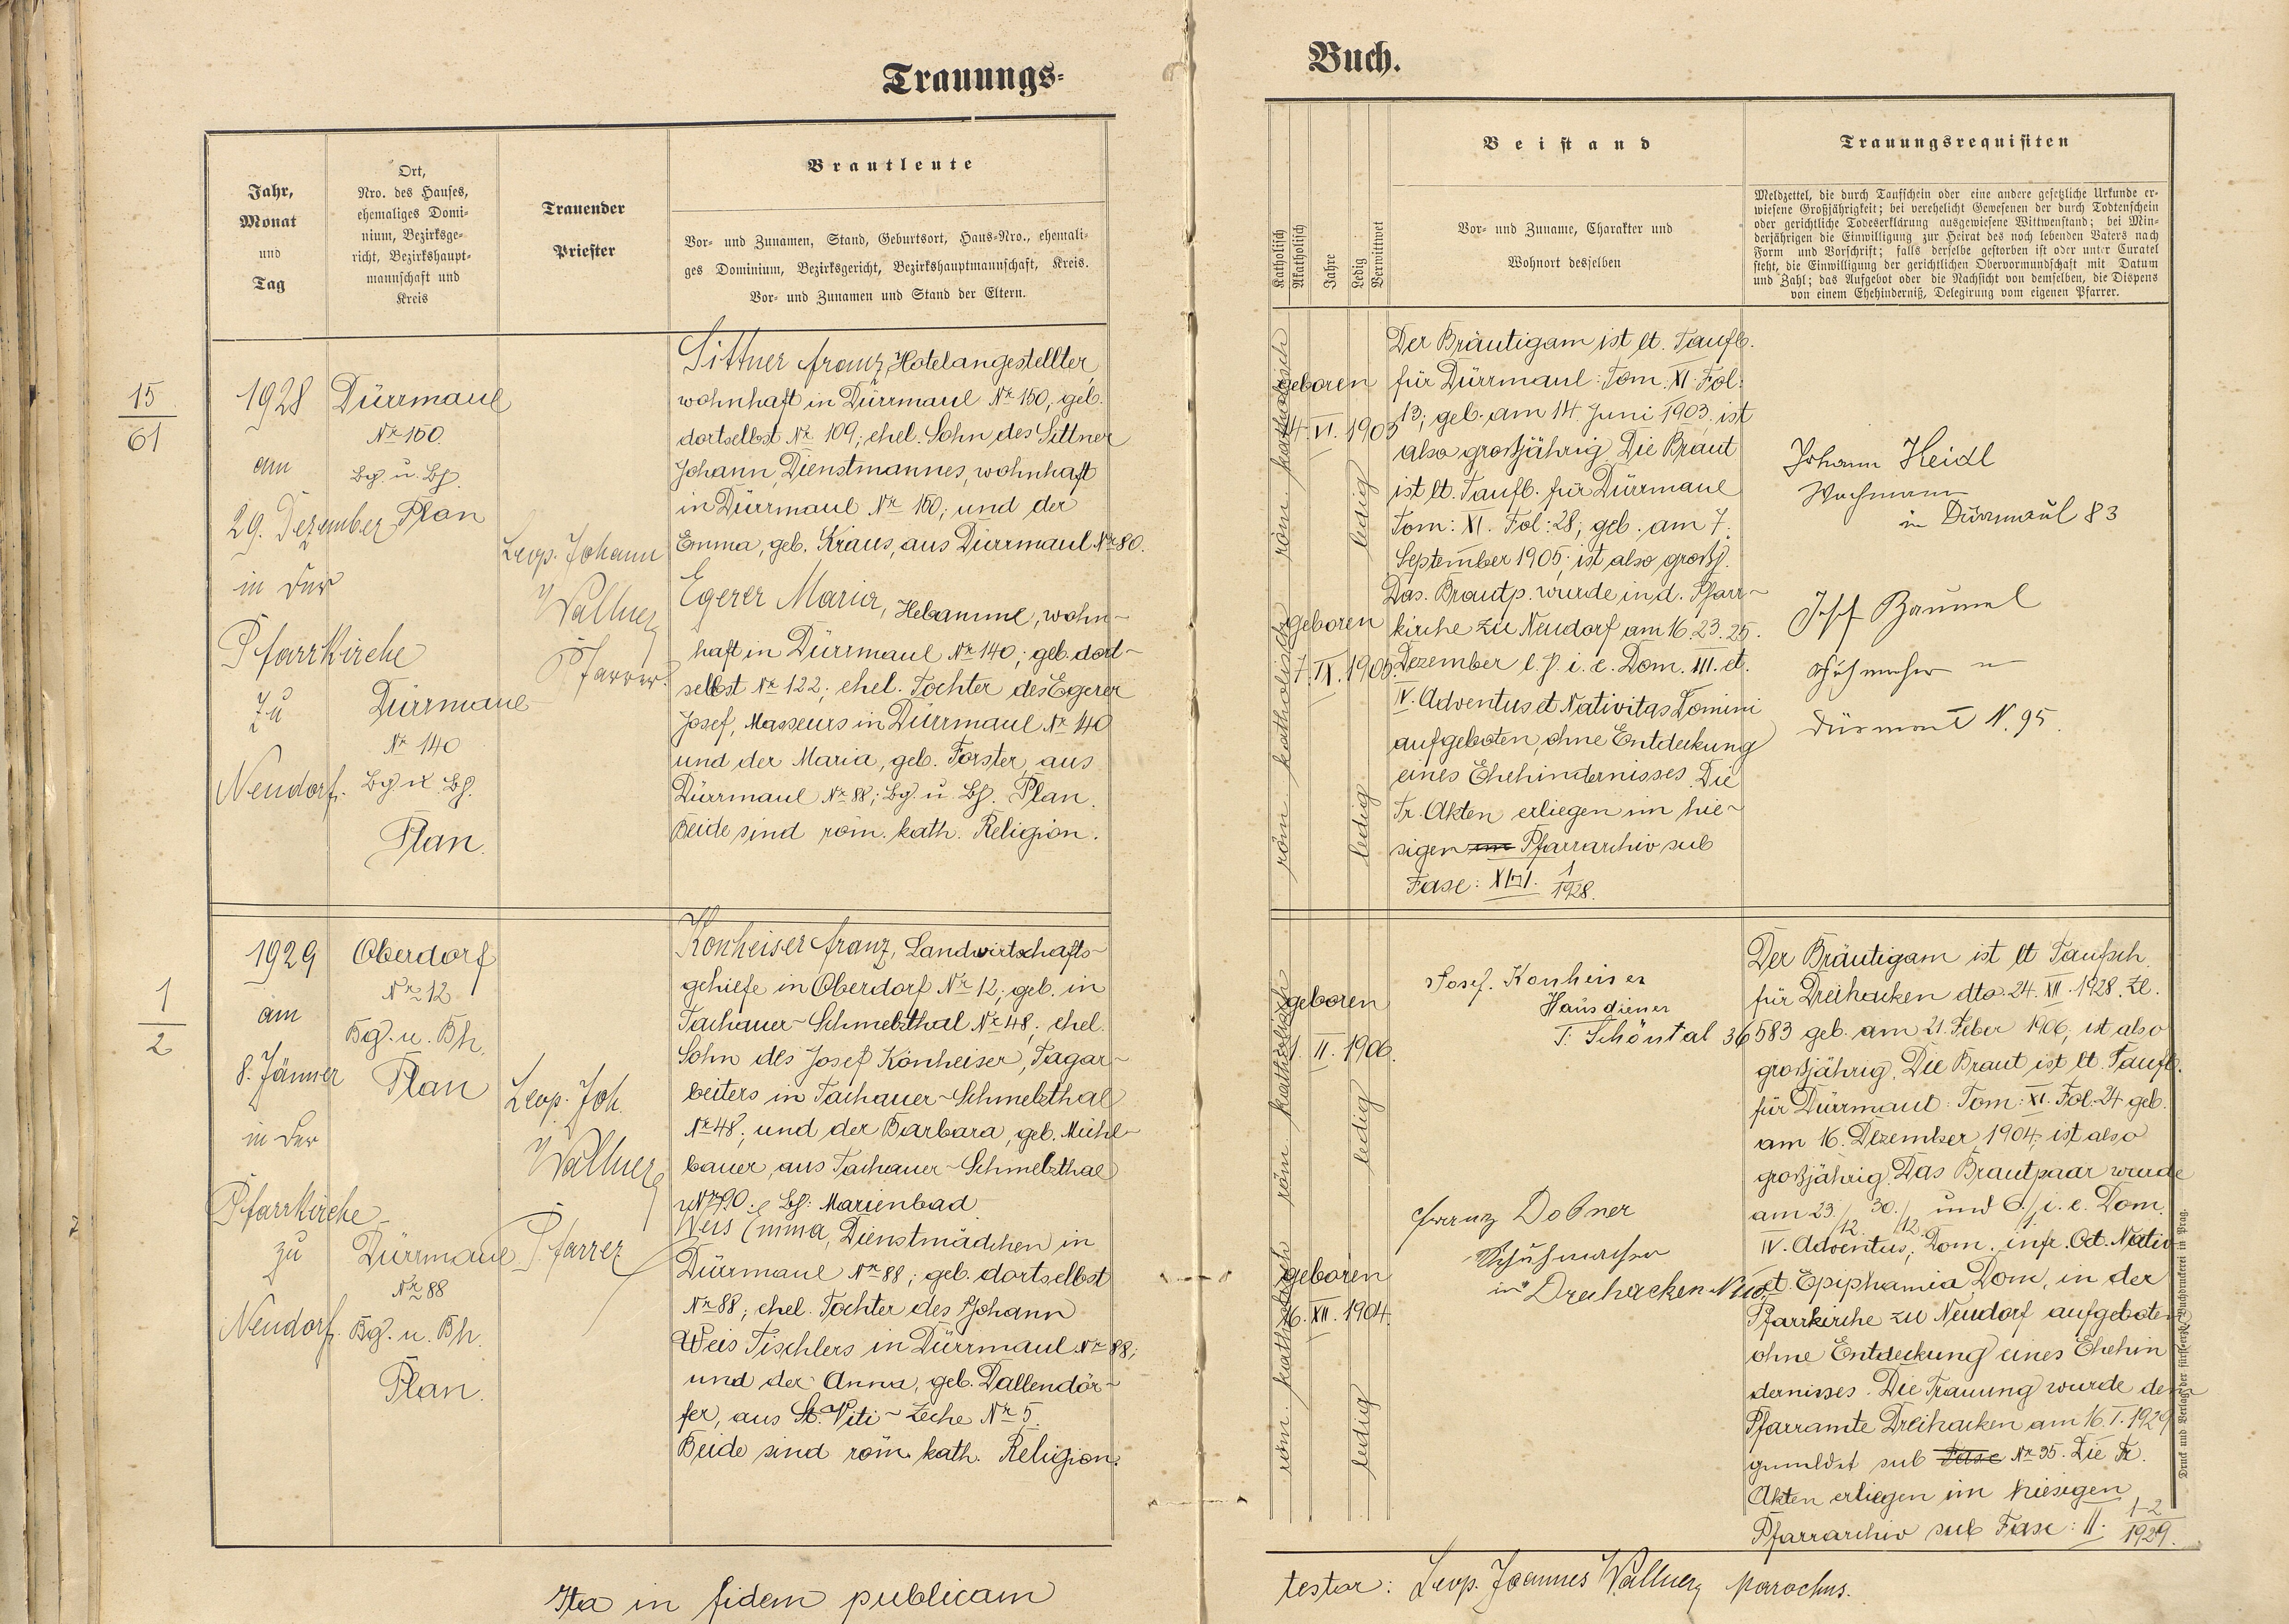 Trauungs-
Jahr,
Monat
und
Tag
Ort,
Nro. des Hauses,
ehemaliges Domi-
nium, Bezirksge-
richt, Bezirkshaupt-
mannschaft und
Kreis
Trauender
Priester
Brautleute
Vor- und Zunamen, Stand, Geburtsort, Haus-Nro., ehemali-
ges Dominium, Bezirksgericht, Bezirkshauptmannschaft, Kreis.
Vor- und Zunamen und Stand der Eltern.
15
61
1928
am
29. Dezember
in der
Pfarrkirche
zu
Neudorf.
Dürrmaul
Nr 150.
Bg. u. Bh.
Plan
Dürrmaul
Nr 140
Bg. u. Bh.
Plan.
Leop. Johann
Wallner
Pfarrer.
Sittner Franz, Hotelangestellter,
wohnhaft in Dürrmaul Nr 150; geb.
dortselbst Nr 109; ehel. Sohn des Sittner
Johann, Dienstmannes, wohnhaft
in Dürrmaul Nr 150; und der
Emma, geb. Kraus, aus Dürrmaul Nr 80.
Egerer Maria, Hebamme, wohn-
haft in Dürrmaul Nr 140; geb. dort-
selbst Nr 122; ehel. Tochter des Egerer
Josef, Masseurs in Dürrmaul Nr 140
und der Maria, geb. Forster, aus
Dürrmaul Nr 88; Bg. u. Bh. Plan.
Beide sind röm. kath. Religion.
1
2
1929
am
8. Jänner
in der
Pfarrkirche
zu
Neudorf.
Oberdorf
Nr 12
Bg. u. Bh.
Plan
Dürrmaul
Nr 88
Bg. u. Bh.
Plan.
Leop. Joh.
Wallner
Pfarrer
Konheiser Franz, Landwirtschafts-
gehilfe in Oberdorf Nr 12; geb. in
Tachauer-Schmelzthal Nr 48; ehel.
Sohn des Josef Konheiser, Tagar-
beiters in Tachauer-Schmelzthal
Nr 48; und der Barbara, geb. Mühl-
bauer, aus Tachauer-Schmelzthal
Nr 90. Bh: Marienbad
Weis Emma, Dienstmädchen in
Dürrmaul Nr 88; geb. dortselbst
Nr 88; ehel. Tochter des Johann
Weis Tischlers in Dürrmaul Nr 88;
und der Anna, geb. Dallendör-
fer, aus St. Viti-Zeche Nr 5.
Beide sind röm. kath. Religion.
Ita in fidem publicam
Buch.
Katholisch
Akatholisch
Jahre
Ledig
Verwittwet
Beistand
Vor- und Zuname, Charakter und
Wohnort desselben
Trauungsrequisiten
Meldzettel, die durch Taufschein oder eine andere gesetzliche Urkunde er-
wiesene Großjährigkeit; bei verehelicht Gewesenen der durch Todtenschein
oder gerichtliche Todeserklärung ausgewiesene Wittwenstand; bei Min-
derjährigen die Einwilligung zur Heirat des noch lebenden Vaters nach
Form und Vorschrift; falls derselbe gestorben ist oder unter Curatel
steht, die Einwilligung der gerichtlichen Obervormundschaft mit Datum
und Zahl; das Aufgebot oder die Nachsicht von demselben, die Dispens
von einem Ehehinderniß, Delegirung vom eigenen Pfarrer.
röm. katholisch
geboren
14. VI. 1903
ledig
röm. katholisch
geboren
7. IX. 1905.
ledig
Der Bräutigam ist lt. Taufb.
für Dürrmaul: Tom. XI. Fol:
13; geb. am 14. Juni 1903 ist
also großjährig. Die Braut
ist lt. Taufb. für Dürrmaul
Tom: XI. Fol: 28; geb. am 7.
September 1905; ist also großj.
Das. Brautp. wurde in d. Pfarr-
kirche zu Neudorf am 16. 23. 25.
Dezember l. J. i. e. Dom. III. et.
IV. Adventus et Nativitas Domini
aufgeboten, ohne Entdeckung
eines Ehehindernisses. Die
Tr. Akten erliegen im hie-
sigen im Pfarrarchiv sub
Fasc: 1
1928.
Johann Heidl
Wachmann
in Dürrmaul 83
Josef Bäuml
Schuhmacher in
Dürmaul N. 95.
röm. katholisch
geboren
21. II. 1906.
ledig
röm. katholisch
geboren
16. XII. 1904.
ledig
Josef. Konheiser
Hausdiener
T. Schöntal 36
Franz Dobner
Schuhmacher
in Dreihacken
Der Bräutigam ist lt Taufsch.
für Dreihacken dto. 24. XII. 1928. Zl.
583 geb. am 21. Feber 1906, ist also
großjährig. Die Braut ist lt. Taufb.
für Dürrmaul: Tom: XI. Fol. 24 geb.
am 16. Dezember 1904; ist also
großjährig. Das Brautpaar wurde
am 23./12. 30./12. und 6./1. i. e. Dom.
IV. Adventus; Dom. infr. Oct. Nativ.
et. Epiphania Dom. in der
Pfarrkirche zu Neudorf aufgeboten
ohne Entdeckung eines Ehehin
dernisses. Die Trauung wurde dem
Pfarramte Dreihacken am 16. I. 1929
gemeldet sub Fasc Nr 35. Die Tr.
Akten erliegen im hiesigen
Pfarrarchiv sub Fasc: II. 1-2
1929.
Druck und Verlag der fürsterzb. Buchdruckerei in Prag.
testor: Leop. Joannes Wallner parochus.